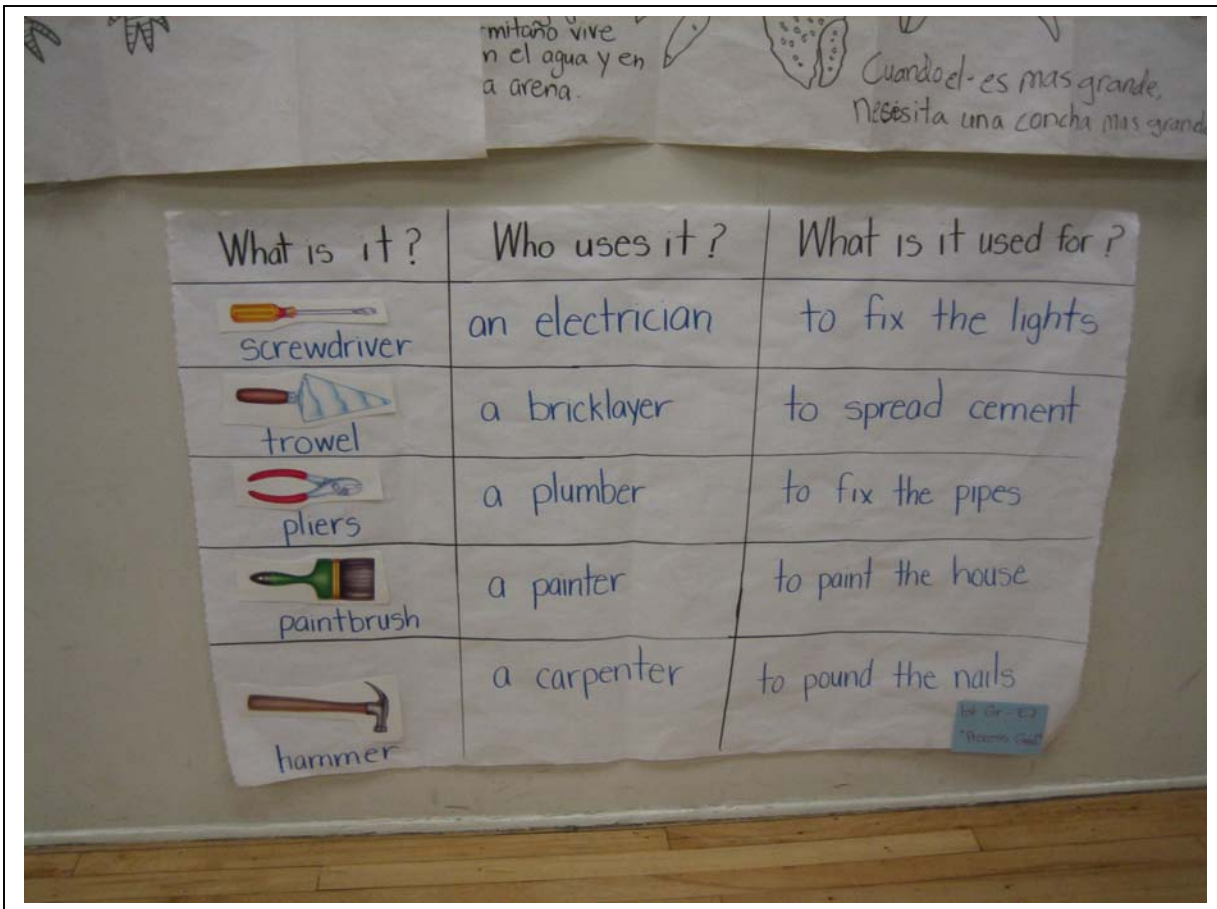 mitaño vive
n el agua y en
a arena.
Cuando el-es mas grande,
necesita una concha mas grande
What is it? Who uses it? What is it used for?
screwdriver an electrician to fix the lights
trowel a bricklayer to spread cement
pliers a plumber to fix the pipes
paintbrush a painter to paint the house
hammer a carpenter to pound the nails
1st Gr - E2
"Process Grid"